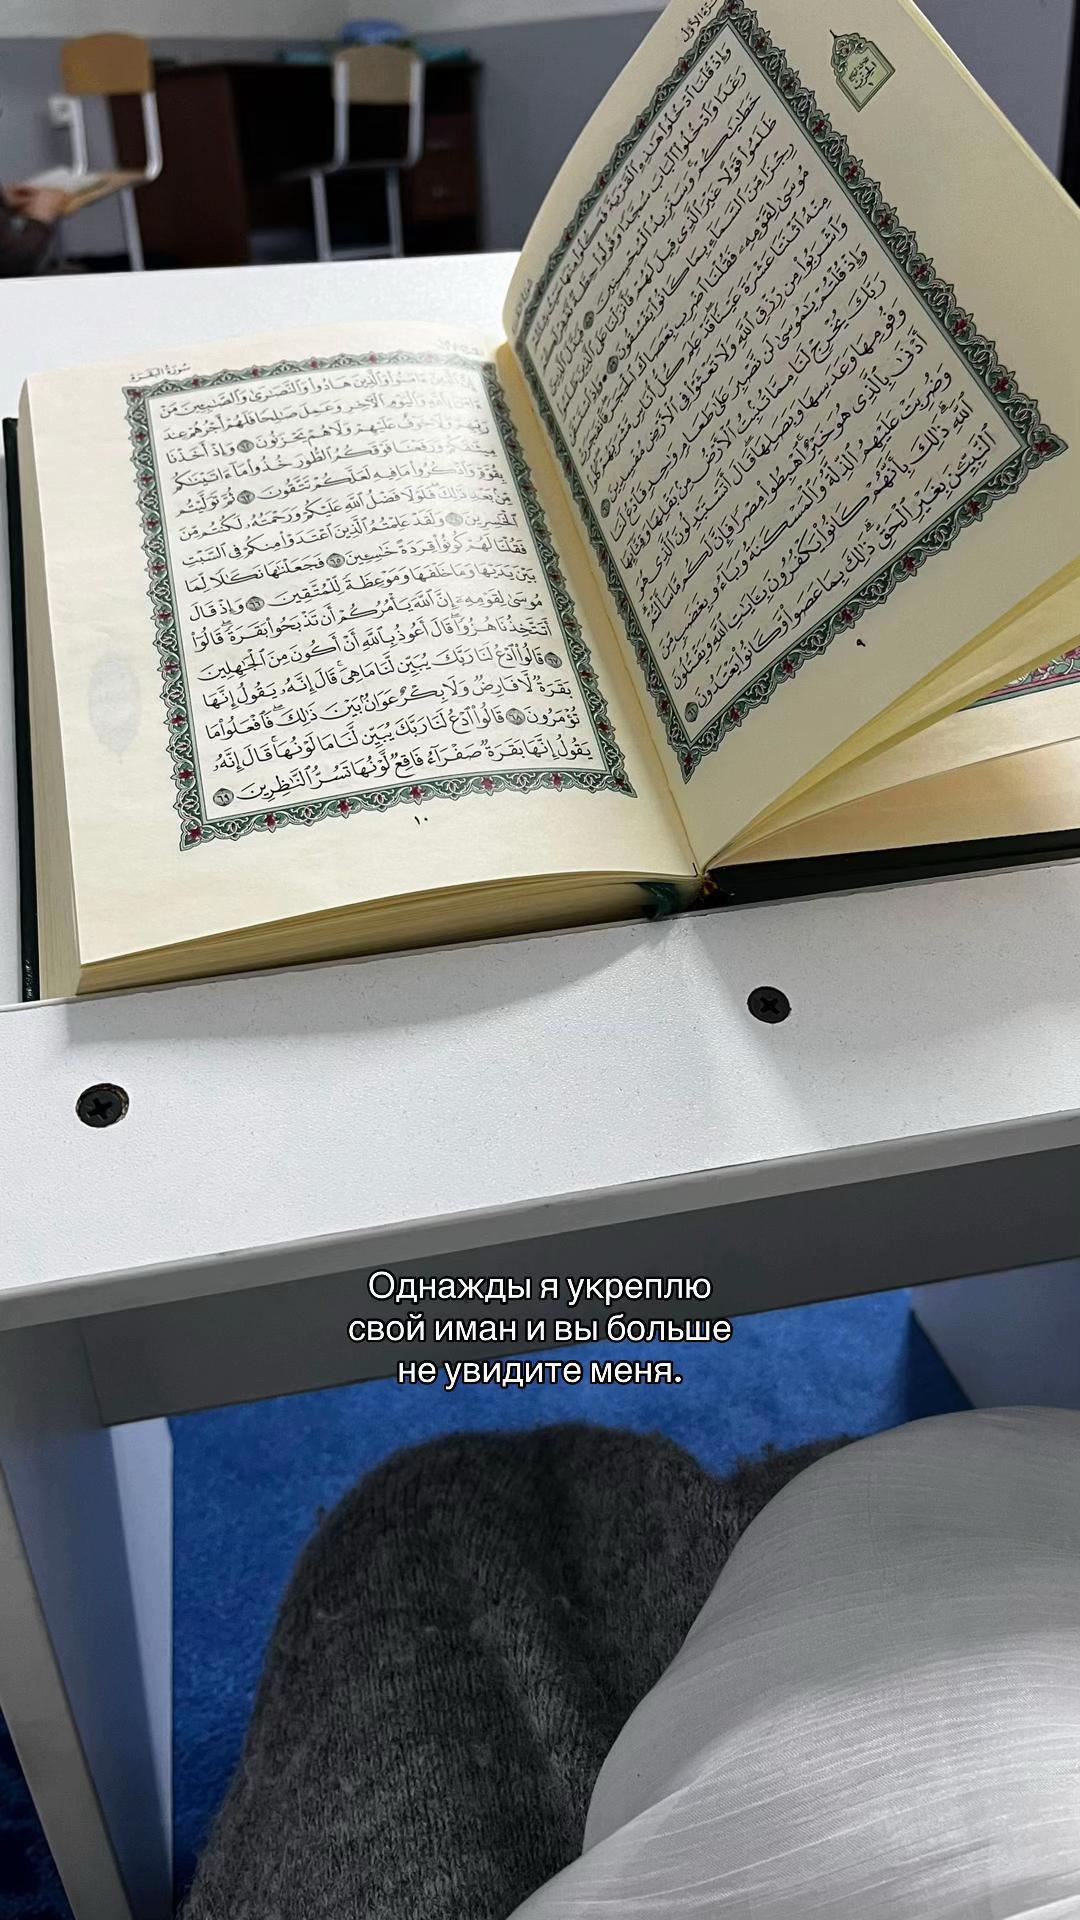 وَإِذْ قُلْنَا ٱدْخُلُوا۟ هَـٰذِهِ ٱلْقَرْيَةَ فَكُلُوا۟ مِنْهَا حَيْثُ شِئْتُمْ
رَغَدًا وَٱدْخُلُوا۟ ٱلْبَابَ سُجَّدًا وَقُولُوا۟ حِطَّةٌ نَّغْفِرْ لَكُمْ
خَطَـٰيَـٰكُمْ وَسَنَزِيدُ ٱلْمُحْسِنِينَ ٥٨ فَبَدَّلَ ٱلَّذِينَ
ظَلَمُوا۟ قَوْلًا غَيْرَ ٱلَّذِى قِيلَ لَهُمْ فَأَنزَلْنَا عَلَى ٱلَّذِينَ ظَلَمُوا۟
رِجْزًا مِّنَ ٱلسَّمَآءِ بِمَا كَانُوا۟ يَفْسُقُونَ ٥٩ ۞ وَإِذِ ٱسْتَسْقَىٰ
مُوسَىٰ لِقَوْمِهِۦ فَقُلْنَا ٱضْرِب بِّعَصَاكَ ٱلْحَجَرَ فَٱنفَجَرَتْ
مِنْهُ ٱثْنَتَا عَشْرَةَ عَيْنًا قَدْ عَلِمَ كُلُّ أُنَاسٍ مَّشْرَبَهُمْ كُلُوا۟
وَٱشْرَبُوا۟ مِن رِّزْقِ ٱللَّهِ وَلَا تَعْثَوْا۟ فِى ٱلْأَرْضِ مُفْسِدِينَ ٦٠
وَإِذْ قُلْتُمْ يَـٰمُوسَىٰ لَن نَّصْبِرَ عَلَىٰ طَعَامٍ وَٰحِدٍ فَٱدْعُ لَنَا
رَبَّكَ يُخْرِجْ لَنَا مِمَّا تُنۢبِتُ ٱلْأَرْضُ مِنۢ بَقْلِهَا وَقِثَّآئِهَا
وَفُومِهَا وَعَدَسِهَا وَبَصَلِهَا قَالَ أَتَسْتَبْدِلُونَ ٱلَّذِى هُوَ
أَدْنَىٰ بِٱلَّذِى هُوَ خَيْرٌ ٱهْبِطُوا۟ مِصْرًا فَإِنَّ لَكُم مَّا سَأَلْتُمْ
وَضُرِبَتْ عَلَيْهِمُ ٱلذِّلَّةُ وَٱلْمَسْكَنَةُ وَبَآءُو بِغَضَبٍ مِّنَ
ٱللَّهِ ذَٰلِكَ بِأَنَّهُمْ كَانُوا۟ يَكْفُرُونَ بِـَٔايَـٰتِ ٱللَّهِ وَيَقْتُلُونَ
ٱلنَّبِيِّـۧنَ بِغَيْرِ ٱلْحَقِّ ذَٰلِكَ بِمَا عَصَوا۟ وَّكَانُوا۟ يَعْتَدُونَ ٦١
٩
سُورَةُ الْبَقَرَةِ
إِنَّ ٱلَّذِينَ ءَامَنُوا۟ وَٱلَّذِينَ هَادُوا۟ وَٱلنَّصَـٰرَىٰ وَٱلصَّـٰبِـِٔينَ مَنْ
ءَامَنَ بِٱللَّهِ وَٱلْيَوْمِ ٱلْـَٔاخِرِ وَعَمِلَ صَـٰلِحًا فَلَهُمْ أَجْرُهُمْ عِندَ
رَبِّهِمْ وَلَا خَوْفٌ عَلَيْهِمْ وَلَا هُمْ يَحْزَنُونَ ٦٢ وَإِذْ أَخَذْنَا
مِيثَـٰقَكُمْ وَرَفَعْنَا فَوْقَكُمُ ٱلطُّورَ خُذُوا۟ مَآ ءَاتَيْنَـٰكُم
بِقُوَّةٍ وَٱذْكُرُوا۟ مَا فِيهِ لَعَلَّكُمْ تَتَّقُونَ ٦٣ ثُمَّ تَوَلَّيْتُم
مِّنۢ بَعْدِ ذَٰلِكَ فَلَوْلَا فَضْلُ ٱللَّهِ عَلَيْكُمْ وَرَحْمَتُهُۥ لَكُنتُم مِّنَ
ٱلْخَـٰسِرِينَ ٦٤ وَلَقَدْ عَلِمْتُمُ ٱلَّذِينَ ٱعْتَدَوْا۟ مِنكُمْ فِى ٱلسَّبْتِ
فَقُلْنَا لَهُمْ كُونُوا۟ قِرَدَةً خَـٰسِـِٔينَ ٦٥ فَجَعَلْنَـٰهَا نَكَـٰلًا لِّمَا
بَيْنَ يَدَيْهَا وَمَا خَلْفَهَا وَمَوْعِظَةً لِّلْمُتَّقِينَ ٦٦ وَإِذْ قَالَ
مُوسَىٰ لِقَوْمِهِۦٓ إِنَّ ٱللَّهَ يَأْمُرُكُمْ أَن تَذْبَحُوا۟ بَقَرَةً قَالُوٓا۟
أَتَتَّخِذُنَا هُزُوًا قَالَ أَعُوذُ بِٱللَّهِ أَنْ أَكُونَ مِنَ ٱلْجَـٰهِلِينَ
٦٧ قَالُوا۟ ٱدْعُ لَنَا رَبَّكَ يُبَيِّن لَّنَا مَا هِىَ قَالَ إِنَّهُۥ يَقُولُ إِنَّهَا
بَقَرَةٌ لَّا فَارِضٌ وَلَا بِكْرٌ عَوَانٌۢ بَيْنَ ذَٰلِكَ فَٱفْعَلُوا۟ مَا
تُؤْمَرُونَ ٦٨ قَالُوا۟ ٱدْعُ لَنَا رَبَّكَ يُبَيِّن لَّنَا مَا لَوْنُهَا قَالَ إِنَّهُۥ
يَقُولُ إِنَّهَا بَقَرَةٌ صَفْرَآءُ فَاقِعٌ لَّوْنُهَا تَسُرُّ ٱلنَّـٰظِرِينَ ٦٩
١٠
Однажды я укреплю
свой иман и вы больше
не увидите меня.